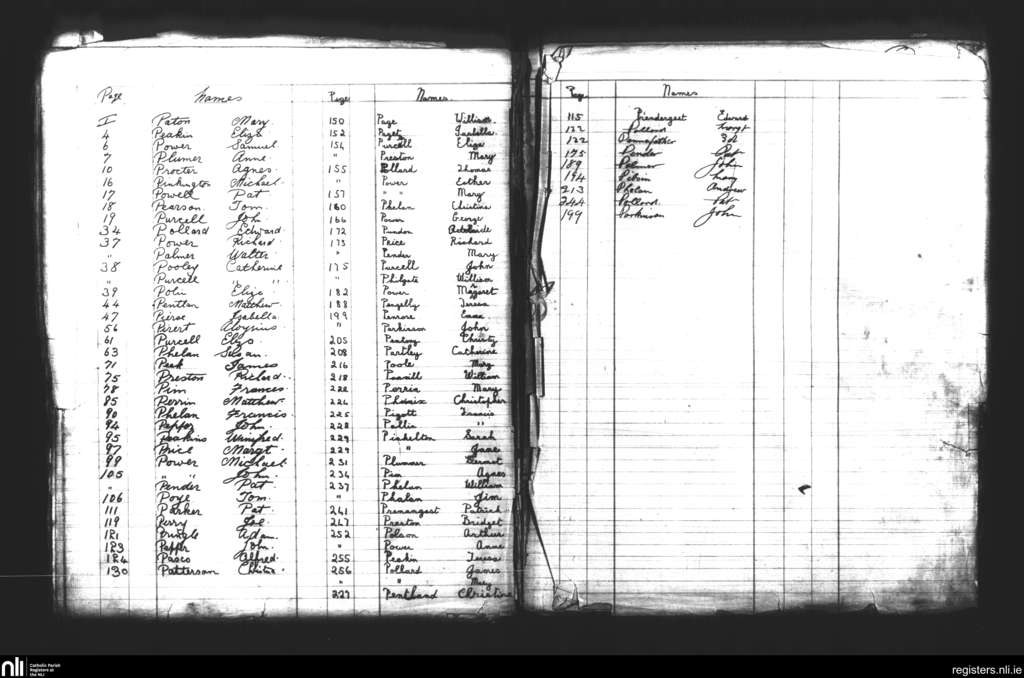 Page Names
I Paton Mary
4 Peakin Eliza
6 Power Samuel
7 Plumer Anne
10 Procter Agnes
16 Pinkington Michael
17 Powell Pat
18 Pearson Tom
19 Purcell John
34 Pollard Edward
37 Power Richard
" Palmer Walter
38 Pooley Catherine
" Purcell " "
39 Eliza
44 Pentlan Matthew
47 Pierse Isabella
56 Aloysius
61 Purcell Eliza
63 Phelan Susan
71 Peek James
75 Preston Richard
78 Pim Frances
85 Perrin Matthew
90 Phelan Francis
94 Pepper John
95 Peakins Winifred
97 Price Margt
99 Power Michael
105 " " John
" Pender Pat
106 Poye Tom
111 Parker Pat
119 Perry Joe
121 Pringle Adam
123 Pepper John
124 Pasco Alfred
130 Patterson Christine
Page Names
150 Page William
152 Paget Isabella
154 Purcell Eliza
" Preston Mary
155 Pollard Thomas
" Power Esther
157 " " Mary
160 Phelan Christine
166 Power George
172 Purdon Adelaide
173 Price Richard
" Pender Mary
175 Purcell John
" Philgate William
182 Power Margaret
188 Pengelly Teresa
199 Penrose
" Parkinson John
205 Christy
208 Partley Catherine
216 Poole Mary
218 William
222 Perrin Mary
224 Phoenix Christopher
225 Pigott Francis
228 "
229 Pickelton Sarah
229 " Jane
231 Plummer
234 Pim Agnes
237 Phelan William
" Phalan Jim
241 Patrick
247 Preston Bridget
252 Polson Arthur
" Power Anne
255 Peakin Teresa
256 Pollard James
" " Mary
227 Pentland Christine
Page Names
115 Prendergest Edward
122 Pollond
122 Pennefather
175 Pender Pat
189 Palmer John
194
213 Phelan Andrew
244 Pollond Pat
199 Parkinson John
nli Catholic Parish
Registers at
the NLI
registers.nli.ie